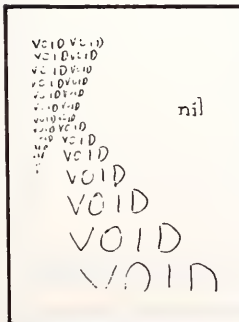 VOID VOID
VOID VOID
VOID VOID
VOID VOID
VOID VOID
VOID VOID
VOID VOID
nil
VOID VOID
VOID VOID
VOID
VOID
VOID
VOID
VOID
VOID